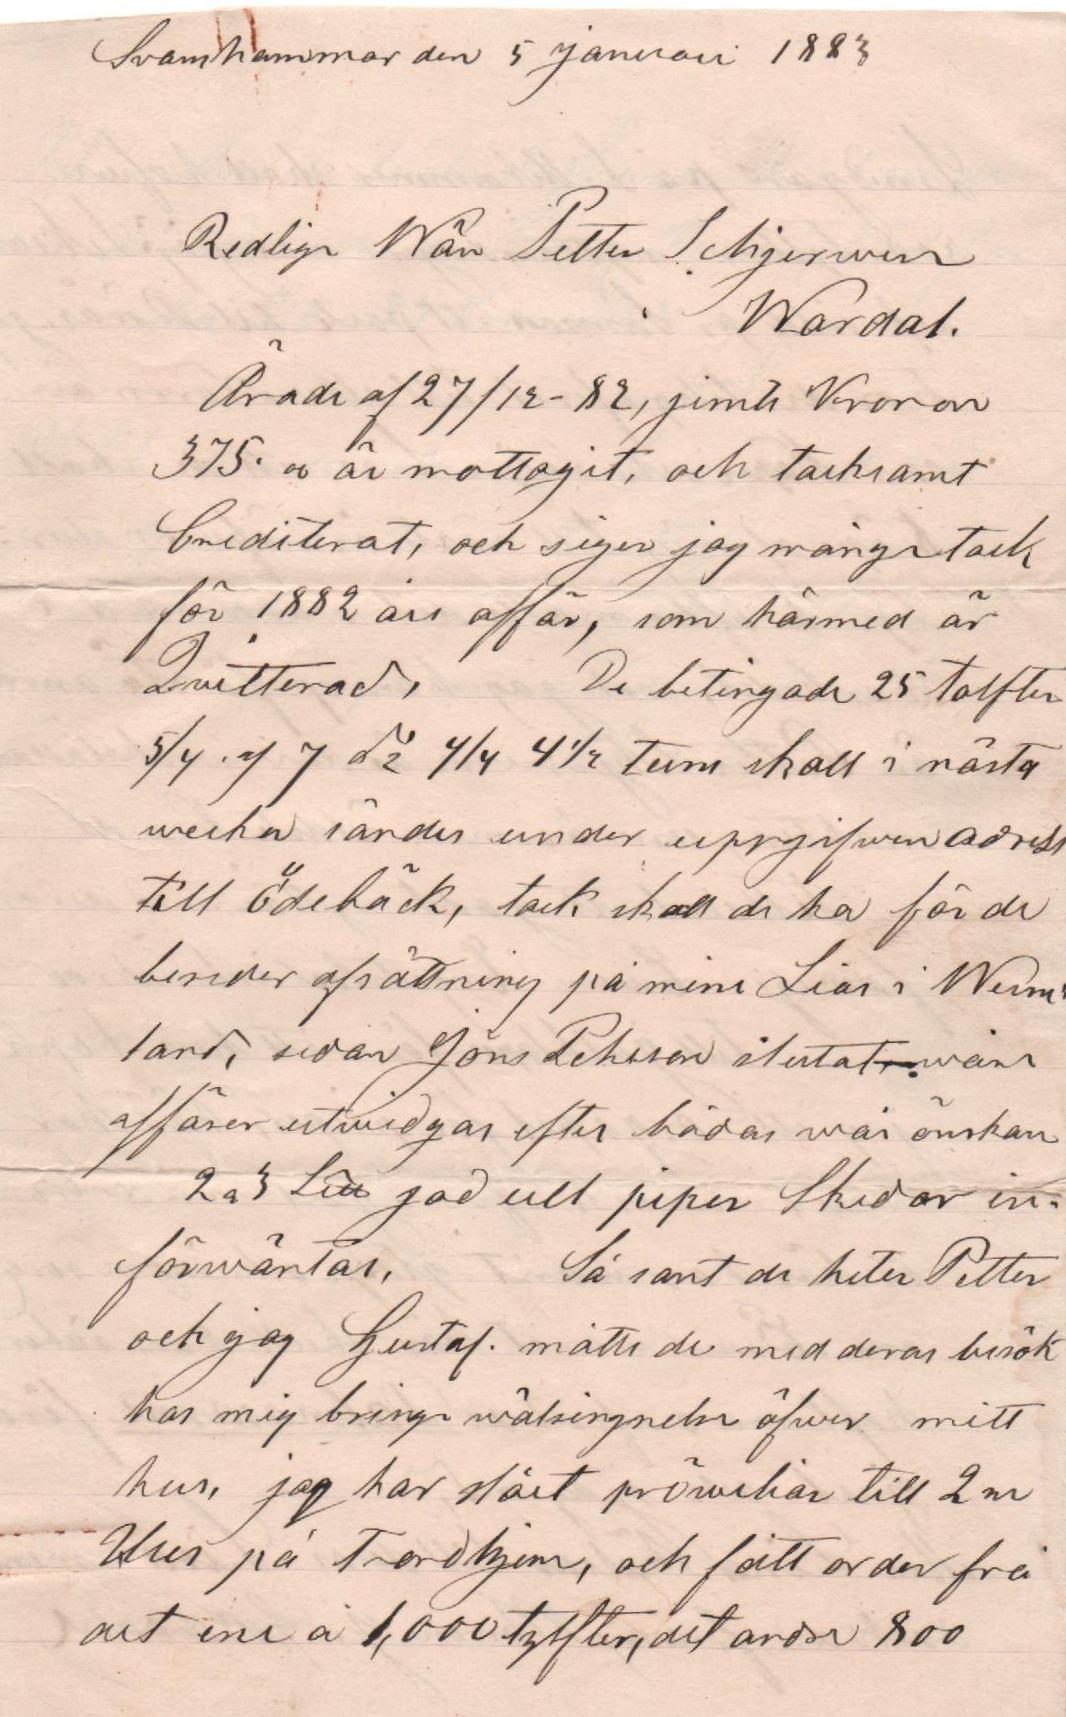 Svanshammar den 5 januari 1883
Redlige Wän Petter Schjerwen
Wardal.
Ärade af 27/12-82, jemte Kronor
375. oo är mottagit, och tacksamt
Crediterat, och siger jag månge tack
för 1882 års affär, som härmed är
Qvitterad, De betingade 25 tolfter
5/4 af 7 do 4/4 4 1/2 tum skall i nästa
wecka sändes under uppgifwen adress
till Ödebäck, tack skall de ha för de
bereder afsättning på mine Liar i Werm-
land, sedan Jöns Pehrson slutat wåre
affärer utwidgas efter bådas wår önskan
2 a 3 god ull piper Skedar in-
förwäntas, Så sant de heter Petter
och jag Gustaf. måtte de med deras besök
hos mig bringe wälsingnelse öfwer mitt
hus, jag har slået pröweliar till 2ne
Hus på Trondhjem, och fått order frå
det ene à 1,000 tylfter, det andre 800